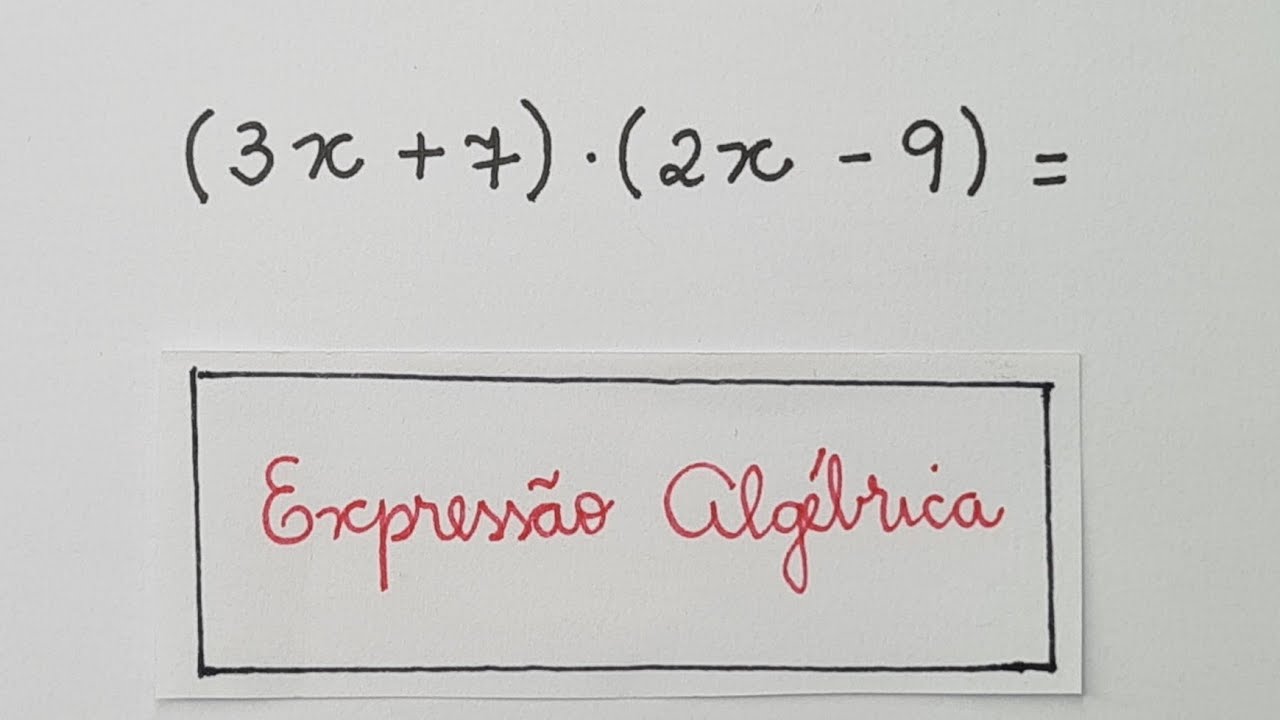 (3x + 7) · (2x - 9) =
Expressão Algébrica